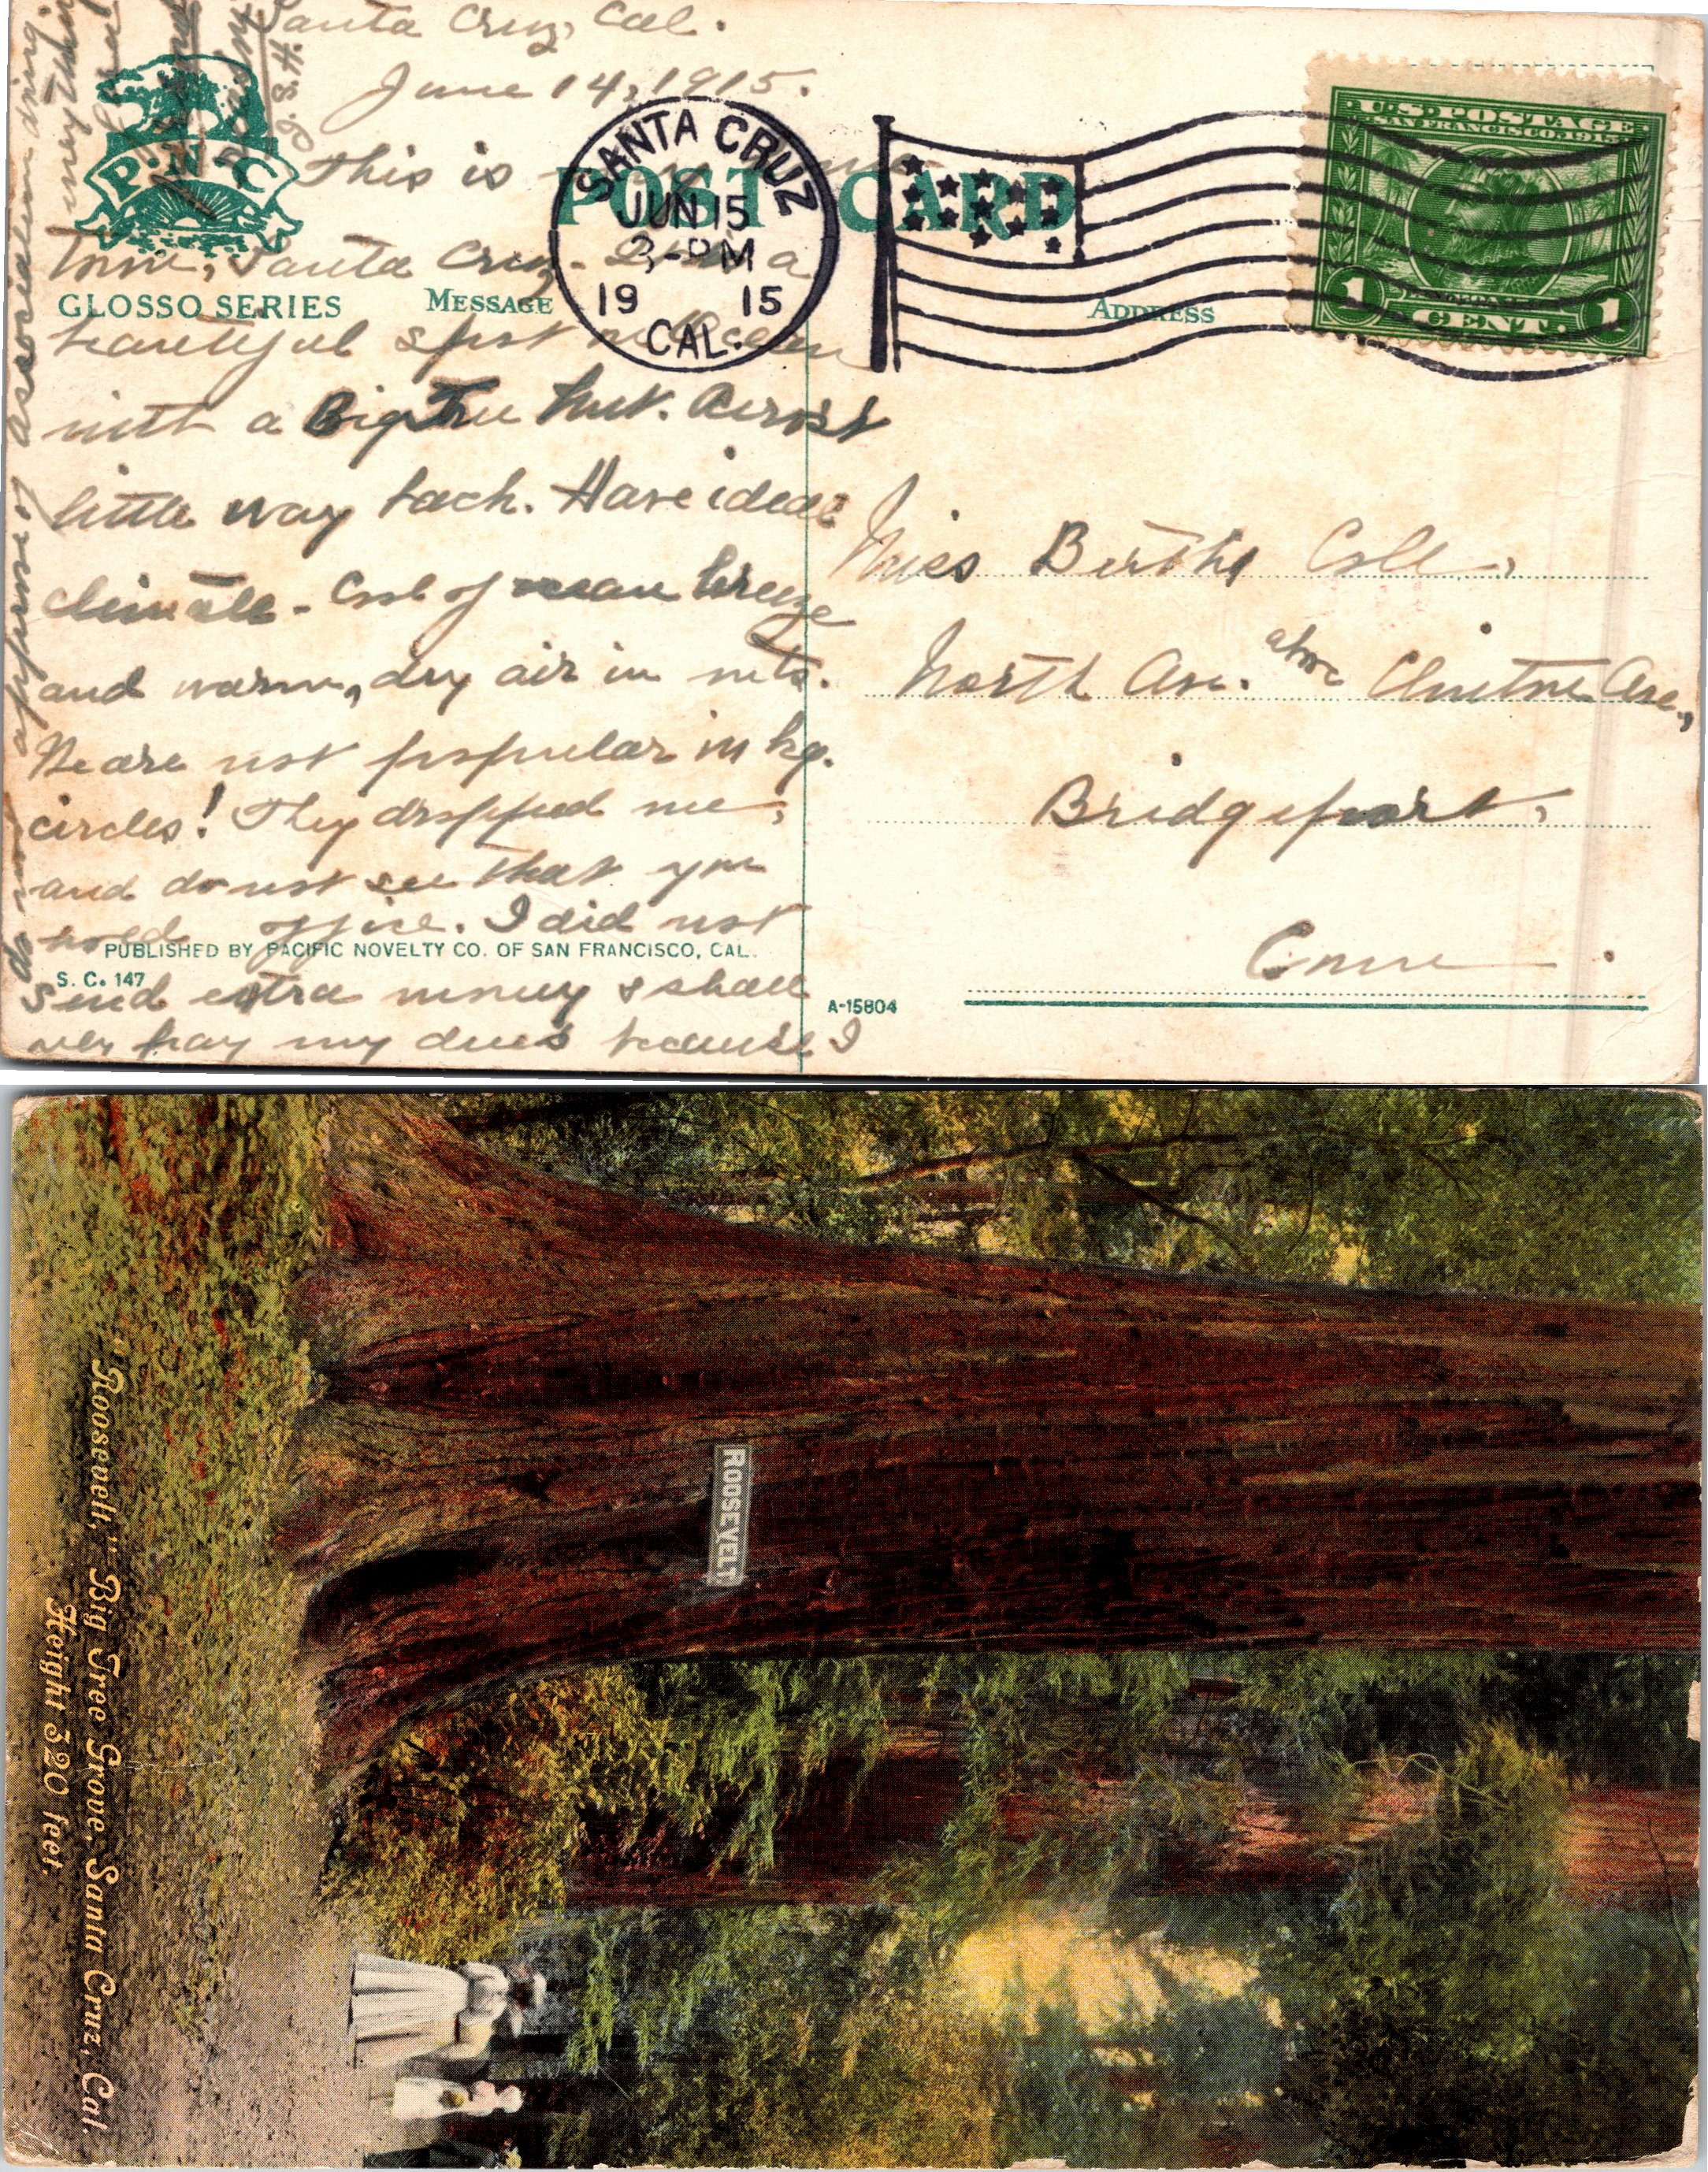 Santa Cruz, Cal.
June 14, 1915.
This is
POST CARD
SANTA CRUZ
JUN 15
3-PM
19 15
CAL.
U.S. POSTAGE
SAN FRANCISCO 1915
1 CENT. 1
P N C
GLOSSO SERIES
MESSAGE
ADDRESS
town, Santa Cruz. a
beautiful spot
with a Big Tree Across
little way back. Have ideal
climate - Cool of ocean breeze
and warm, dry air in mts.
We are not popular in
circles! They dropped me,
and do not see that you
hold office. I did not
send extra money & shall
pay my dues because I
do not approve of
Miss Bertha Coll,
North Ave. above Clinton Ave.,
Bridgeport,
Conn.
PUBLISHED BY PACIFIC NOVELTY CO. OF SAN FRANCISCO, CAL.
S. C. 147
A-15804
ROOSEVELT
"Roosevelt," Big Tree Grove, Santa Cruz, Cal.
Height 320 feet.